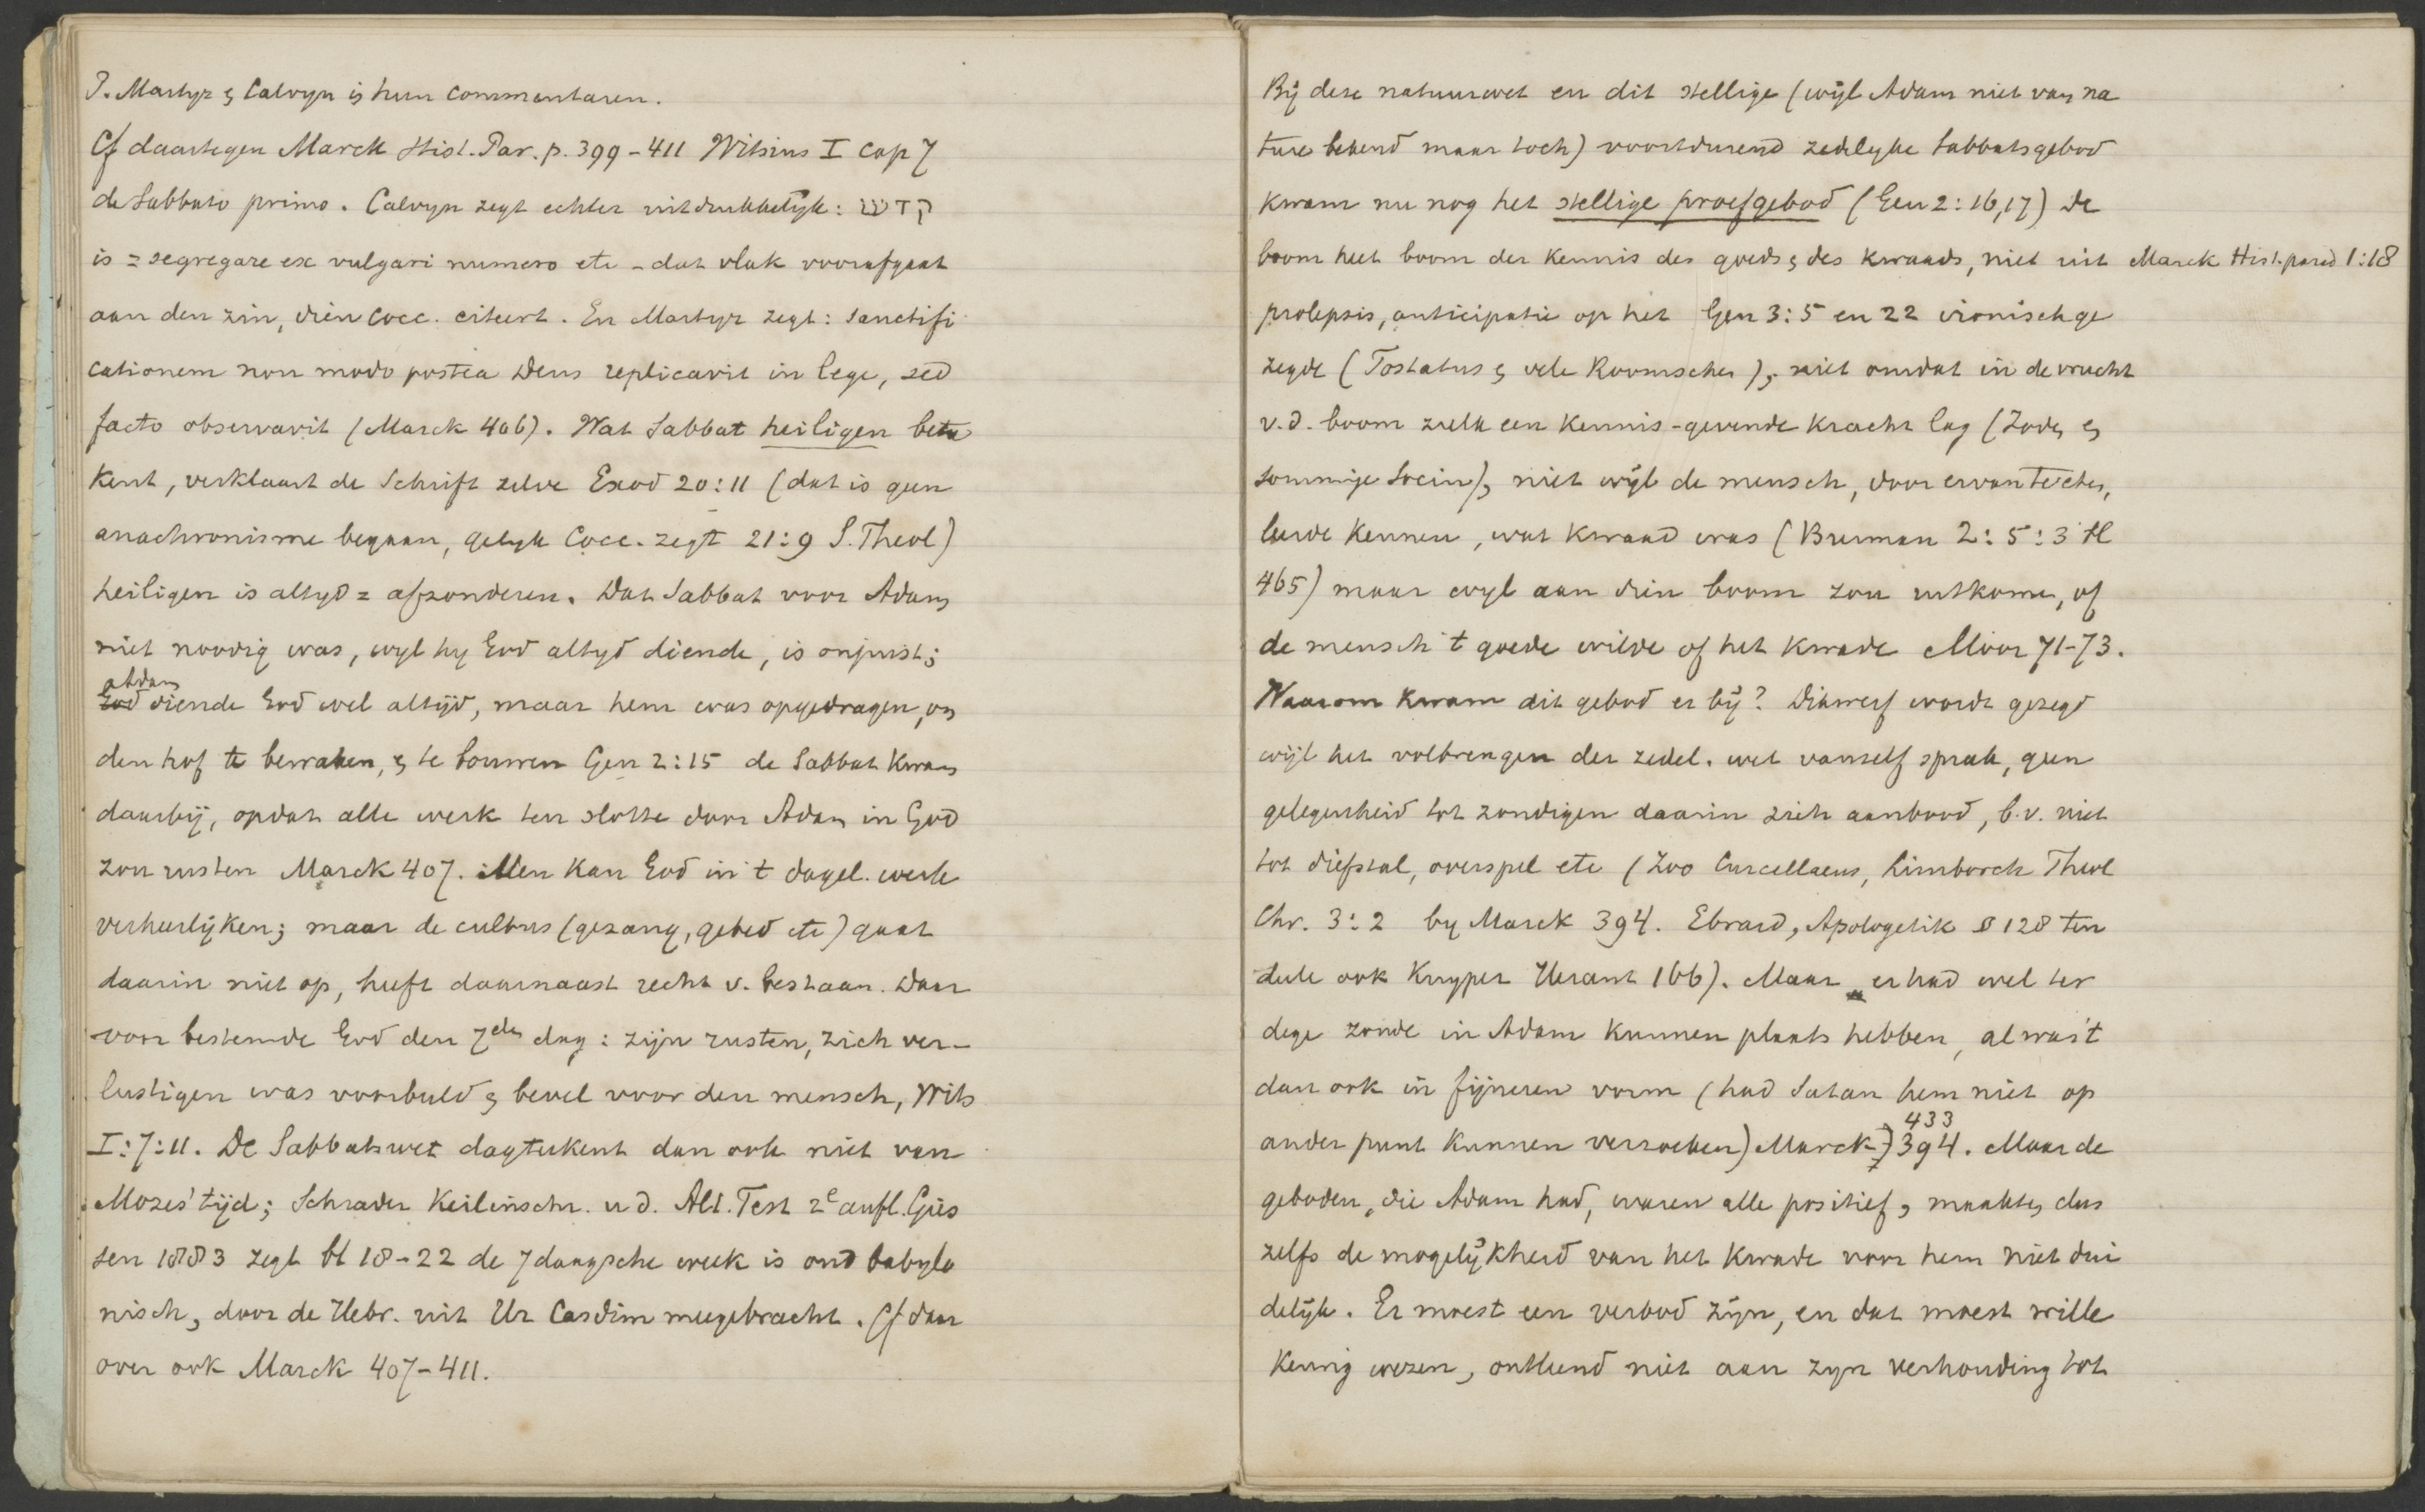 P. Martyr & Calvyn in hun commentaren.
Cf daartegen Marck Hist. Par. p. 399-411 Witsius I cap 7
de Sabbato primo. Calvyn zegt echter uitdrukkelijk: קדש
is = segregare ex vulgari numero etc - dat vlak voorafgaat
aan den zin, dien Cocc. citeert. En Martyr zegt: sanctifi
cationem non modo postea Deus replicavit in lege, sed
facto observavit (Marck 406). Wat Sabbat heiligen bete
kent, verklaart de Schrift zelve Exod 20:11 (dat is geen
anachronisme begaan, gelyk Cocc. zegt 21:9 S. Theol)
heiligen is altyd = afzonderen. Dat Sabbat voor Adam
niet noodig was, wyl hy God altyd diende, is onjuist;
Adam
God diende God wel altijd, maar hem was opgedragen, om
den hof te bewaken, & te bouwen Gen 2:15 de Sabbat kwam
daarbij, opdat alle werk ten slotte door Adam in God
zou rusten Marck 407. Men kan God in 't dagel. werk
verheerlijken; maar de cultus (gezang, gebed etc) gaat
daarin niet op, heeft daarnaast recht v. bestaan. Daar
voor bestemde God den 7den dag: zijn rusten, zich ver-
lustigen was voorbeeld & bevel voor den mensch, Wits
I:7:11. De Sabbatswet dagteekent dan ook niet van
Mozes' tijd; Schrader Keilinschr. u d. Alt. Test 2e aufl. Gies
sen 1883 zegt bl 18-22 de 7 daagsche week is oud babylo
nisch, door de Hebr. uit Ur Casdim meegebracht. Cf daar
over ook Marck 407-411.
Bij deze natuurwet en dit stellige (wijl Adam niet van na
ture bekend maar toch) voortdurend zedelyke Sabbatsgebod
kwam nu nog het stellige proefgebod (Gen 2:16,17) De
boom heet boom der kennis des goeds & des kwaads, niet uit Marck Hist. parad 1:18
prolepsis, anticipatie op het Gen 3:5 en 22 ironisch ge
zegde (Tostatus & vele Roomschen), niet omdat in de vrucht
v.d. boom zulk een kennis-gevende kracht lag (Joden &
sommige Socin), niet wijl de mensch, door ervan te eten,
leerde kennen, wat kwaad was (Burman 2:5:3 bl
465) maar wyl aan dien boom zou uitkomen, of
de mensch 't goede wilde of het kwade Moor 71-73.
Waarom kwam dit gebod er bij? Dikwerf wordt gezegd
wijl het volbrengen der zedel. wet vanself sprak, geen
gelegenheid tot zondigen daarin zich aanbood, b.v. niet
tot diefstal, overspel etc (Zoo Curcellaeus, Limborch Theol
Chr. 3:2 by Marck 394. Ebrard, Apologetik § 128 ten
deele ook Kuyper Heraut 166). Maar er had wel ter
dege zonde in Adam kunnen plaats hebben, al was 't
dan ook in fijneren vorm (had Satan hem niet op
433
ander punt kunnen verzoeken) Marck 394. Maar de
geboden, die Adam had, waren alle positief, maakten dus
zelfs de mogelijkheid van het kwade voor hem niet dui
delijk. Er moest een verbod zijn, en dat moest wille
keurig wezen, ontleend niet aan zyn verhouding tot